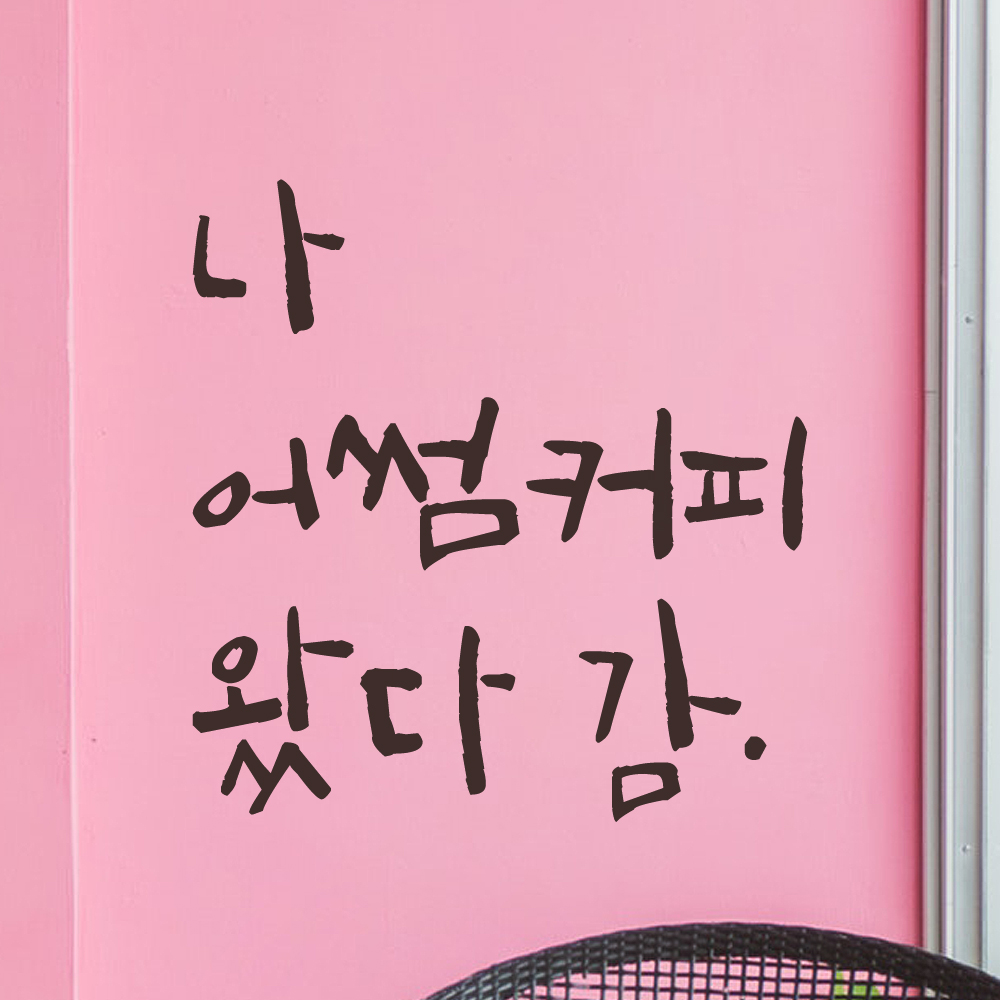 나
어썸커피
왔다 감.